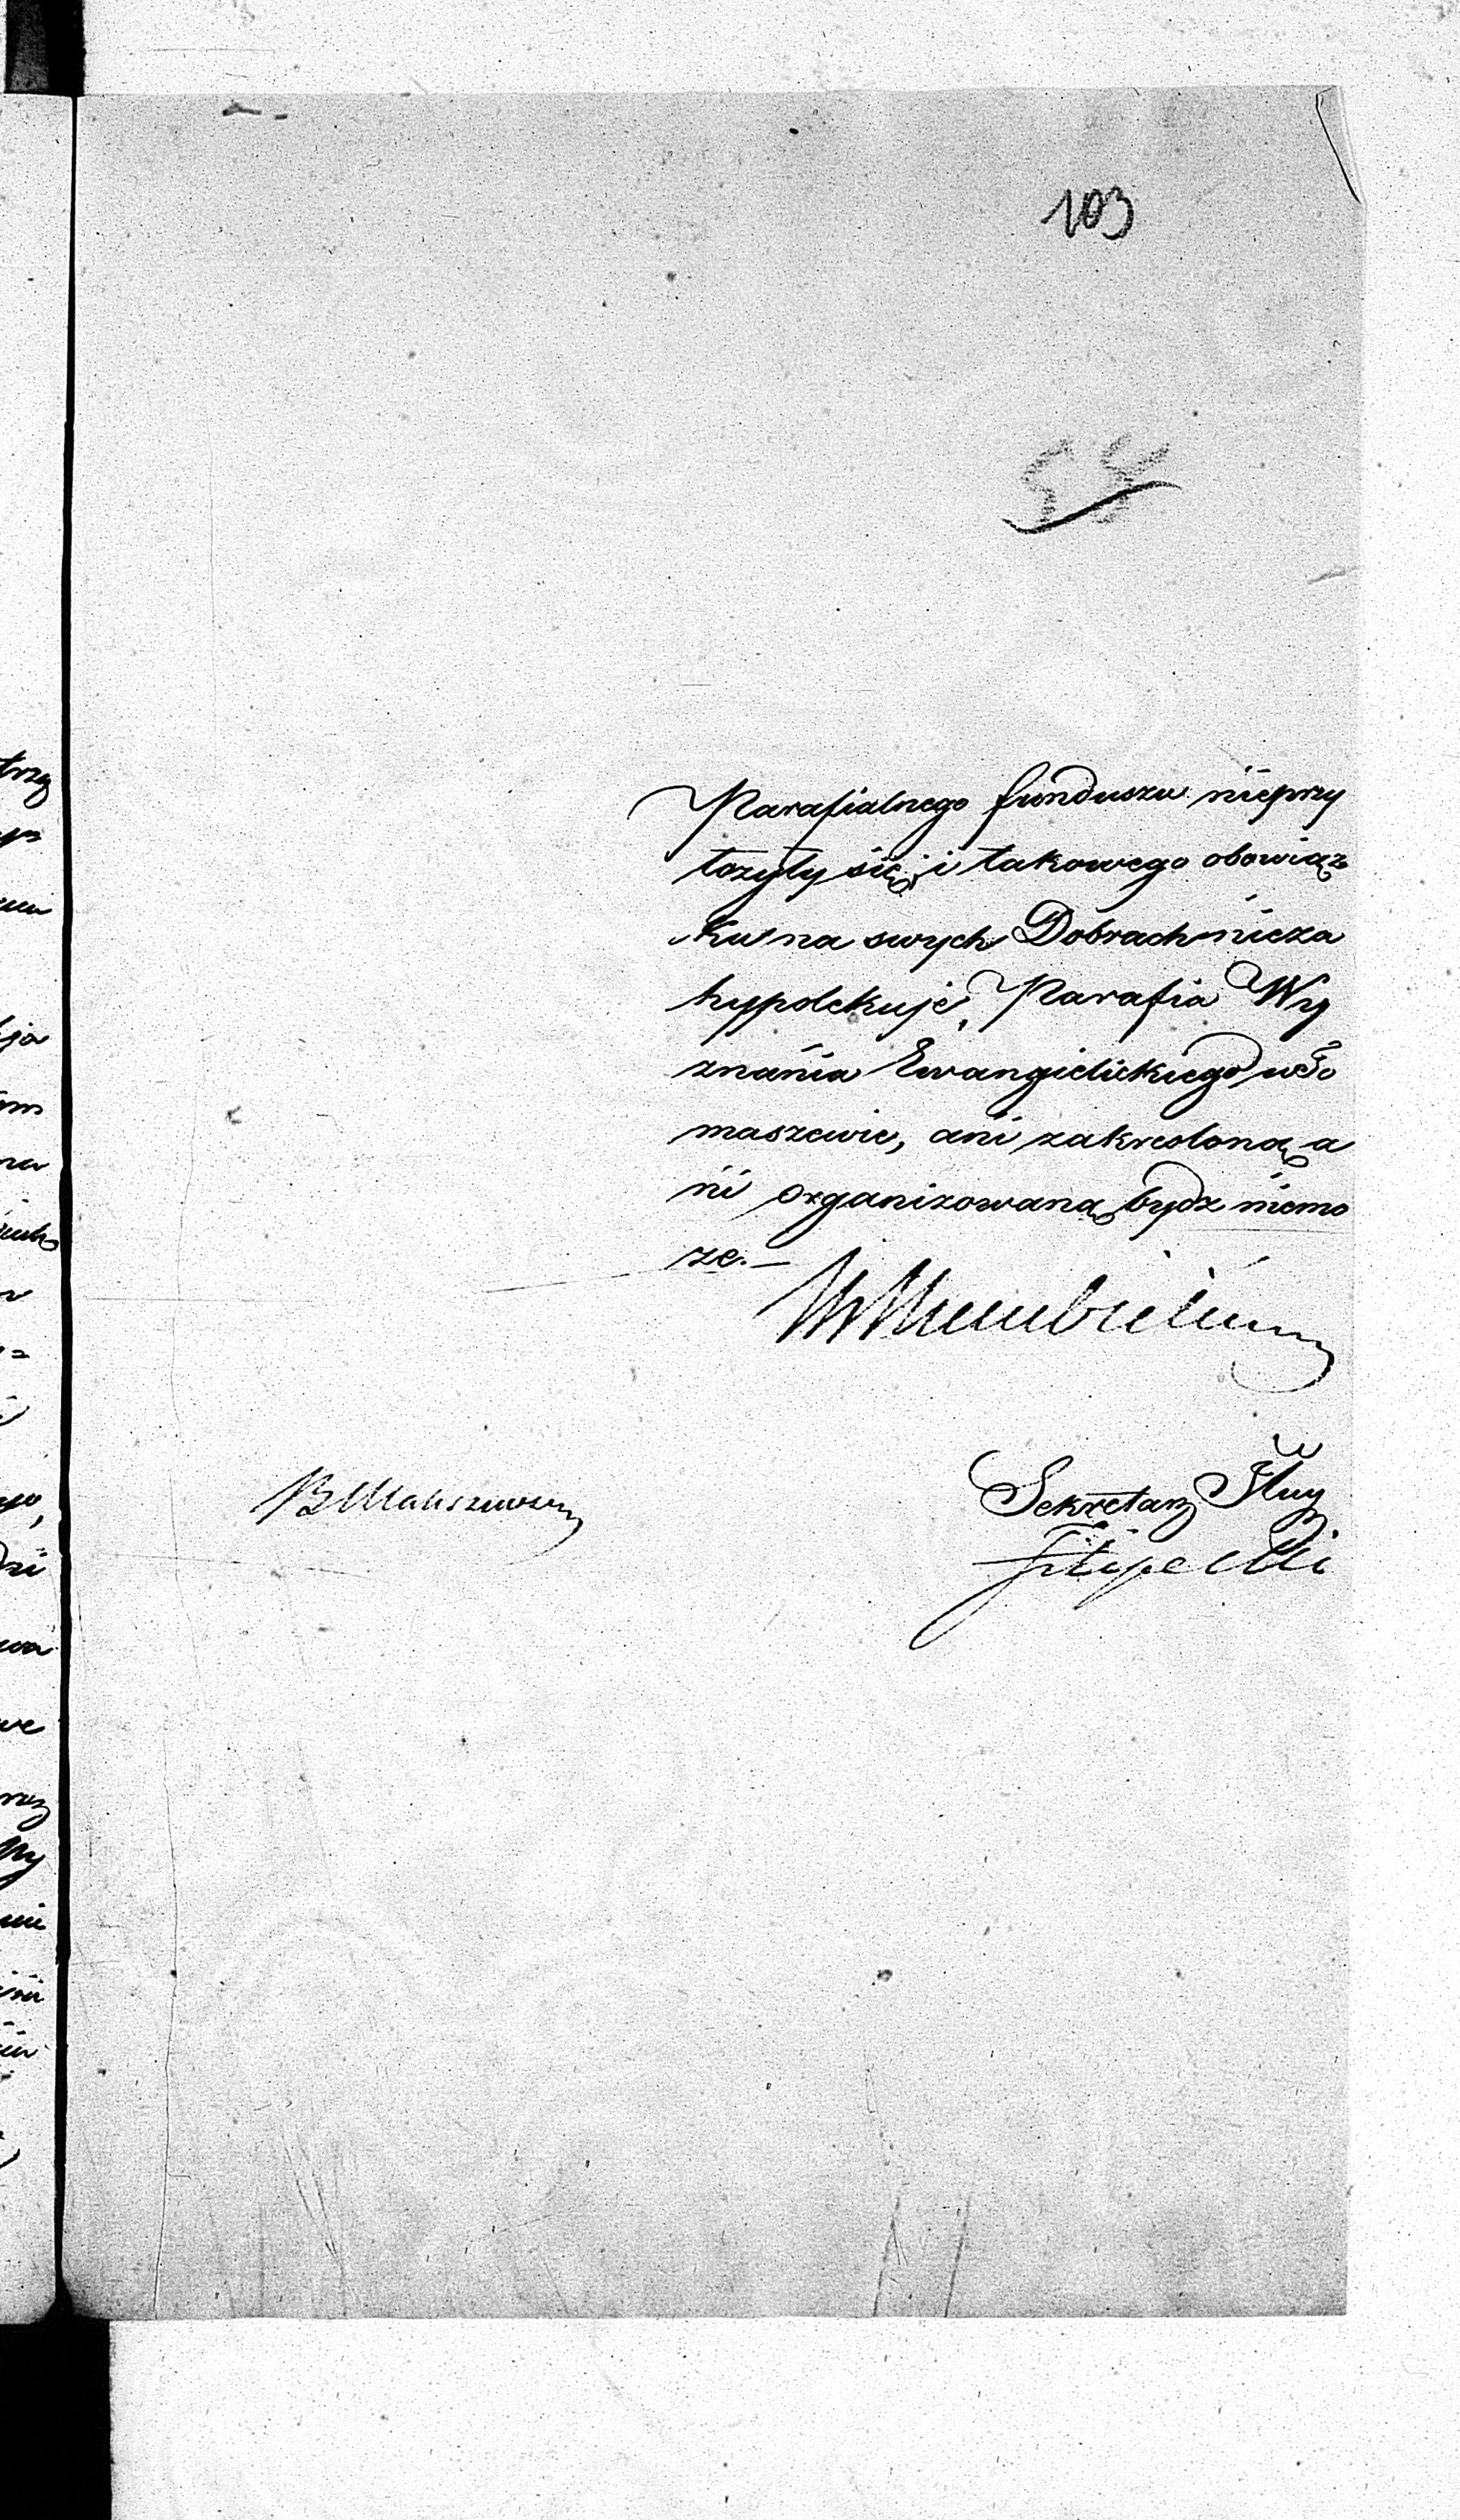 103
Parafialnego funduszu nieprzy
łożyły się, i takowego obowiąz
ku na swych Dobrach nieza
hypotekuje, Parafia Wy
znania Ewangielickiego w To
maszewie, ani zakreśloną a
ni organizowaną bydz niemo
że.—
Sekretarz